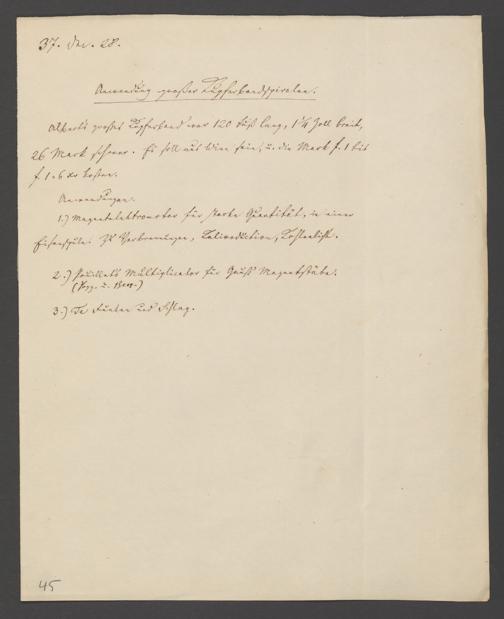 37. Dec. 28.
Anwendung großer Kupferbandspiralen.
Albert's großes Kupferband war 120 Fuß lang, 1¼ Zoll breit,
26 Mark schwer. Es soll aus Wien sein, u. die Mark f. 1 bis
f 1.6 xr kosten.
Anwendungen.
1.) Magnetelektromotor für starke Quantität, in einer
Eisenspule. Zu Verbrennungen, Kalireduction, Kohlenlicht.
2.) Pouillet's Multiplicator für Gauß Magnetstäbe.
(Pogg. u. )
3.) Funken und Schlag.
45